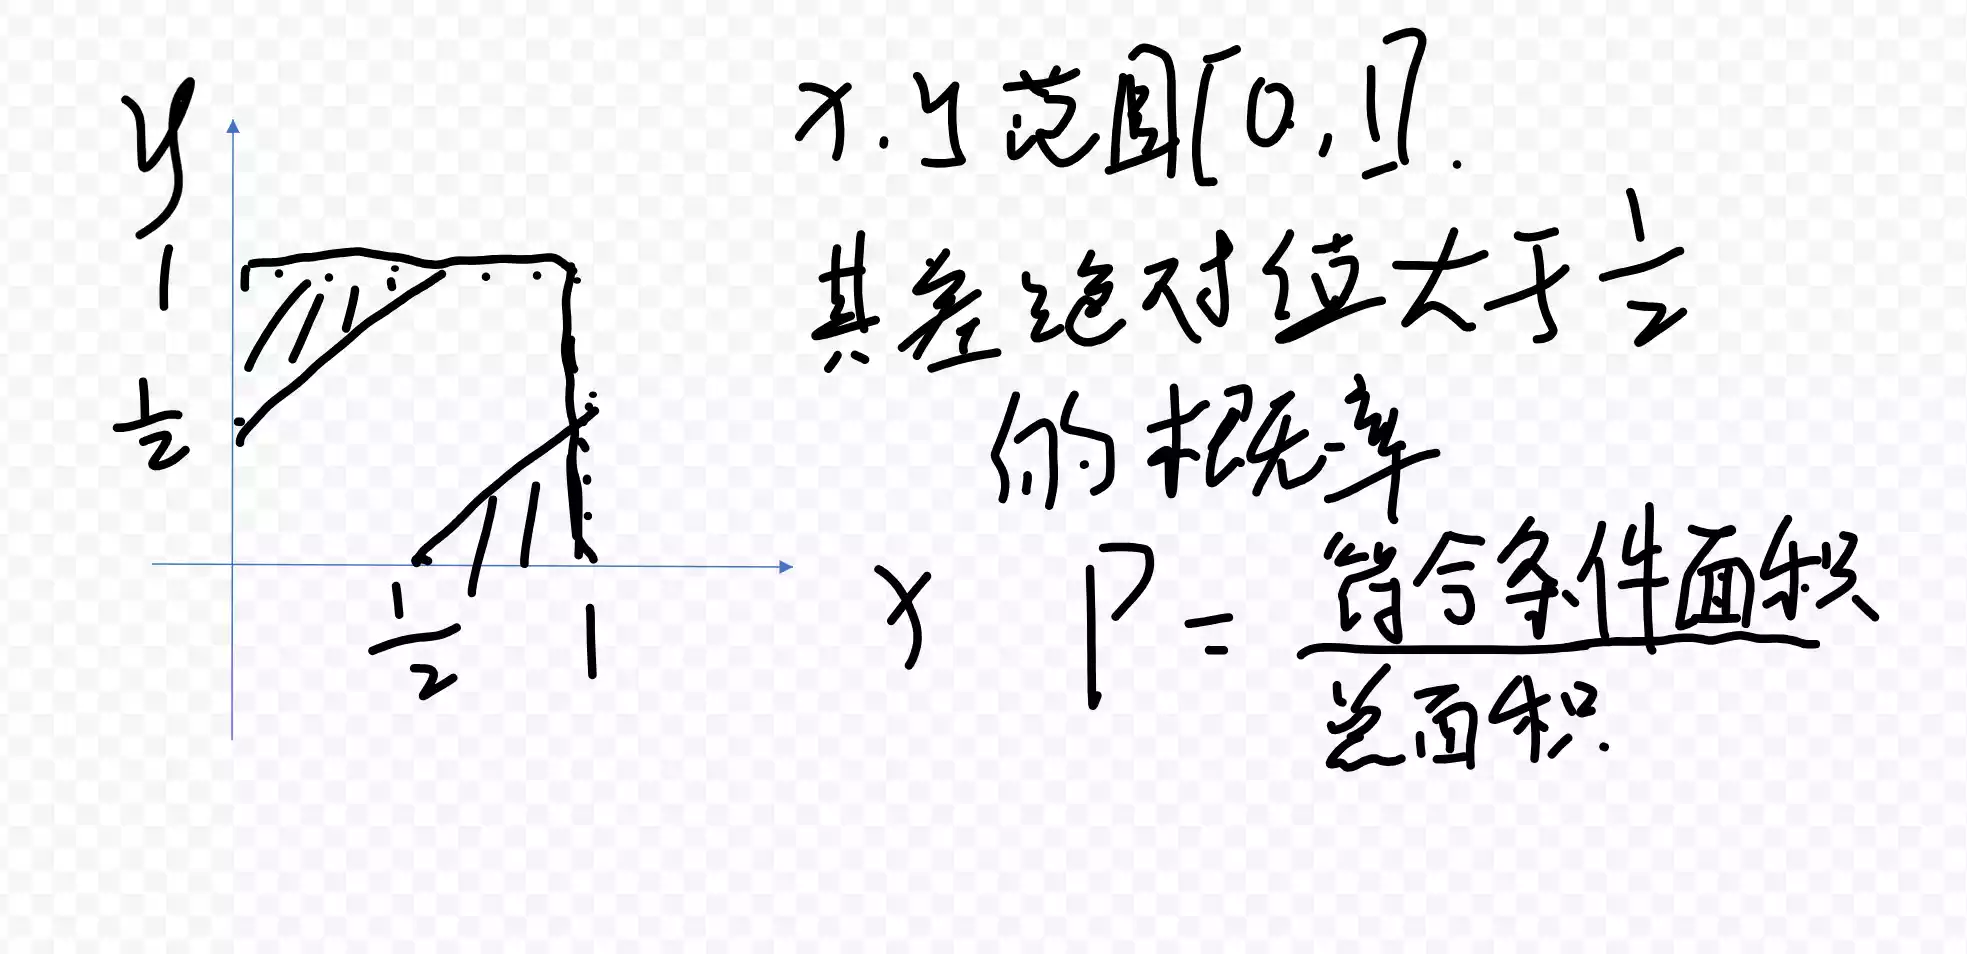 y
1
1/2
1/2
1
x
x.y范围[0,1].
其差绝对值大于1/2
的概率
P=符合条件面积/总面积.